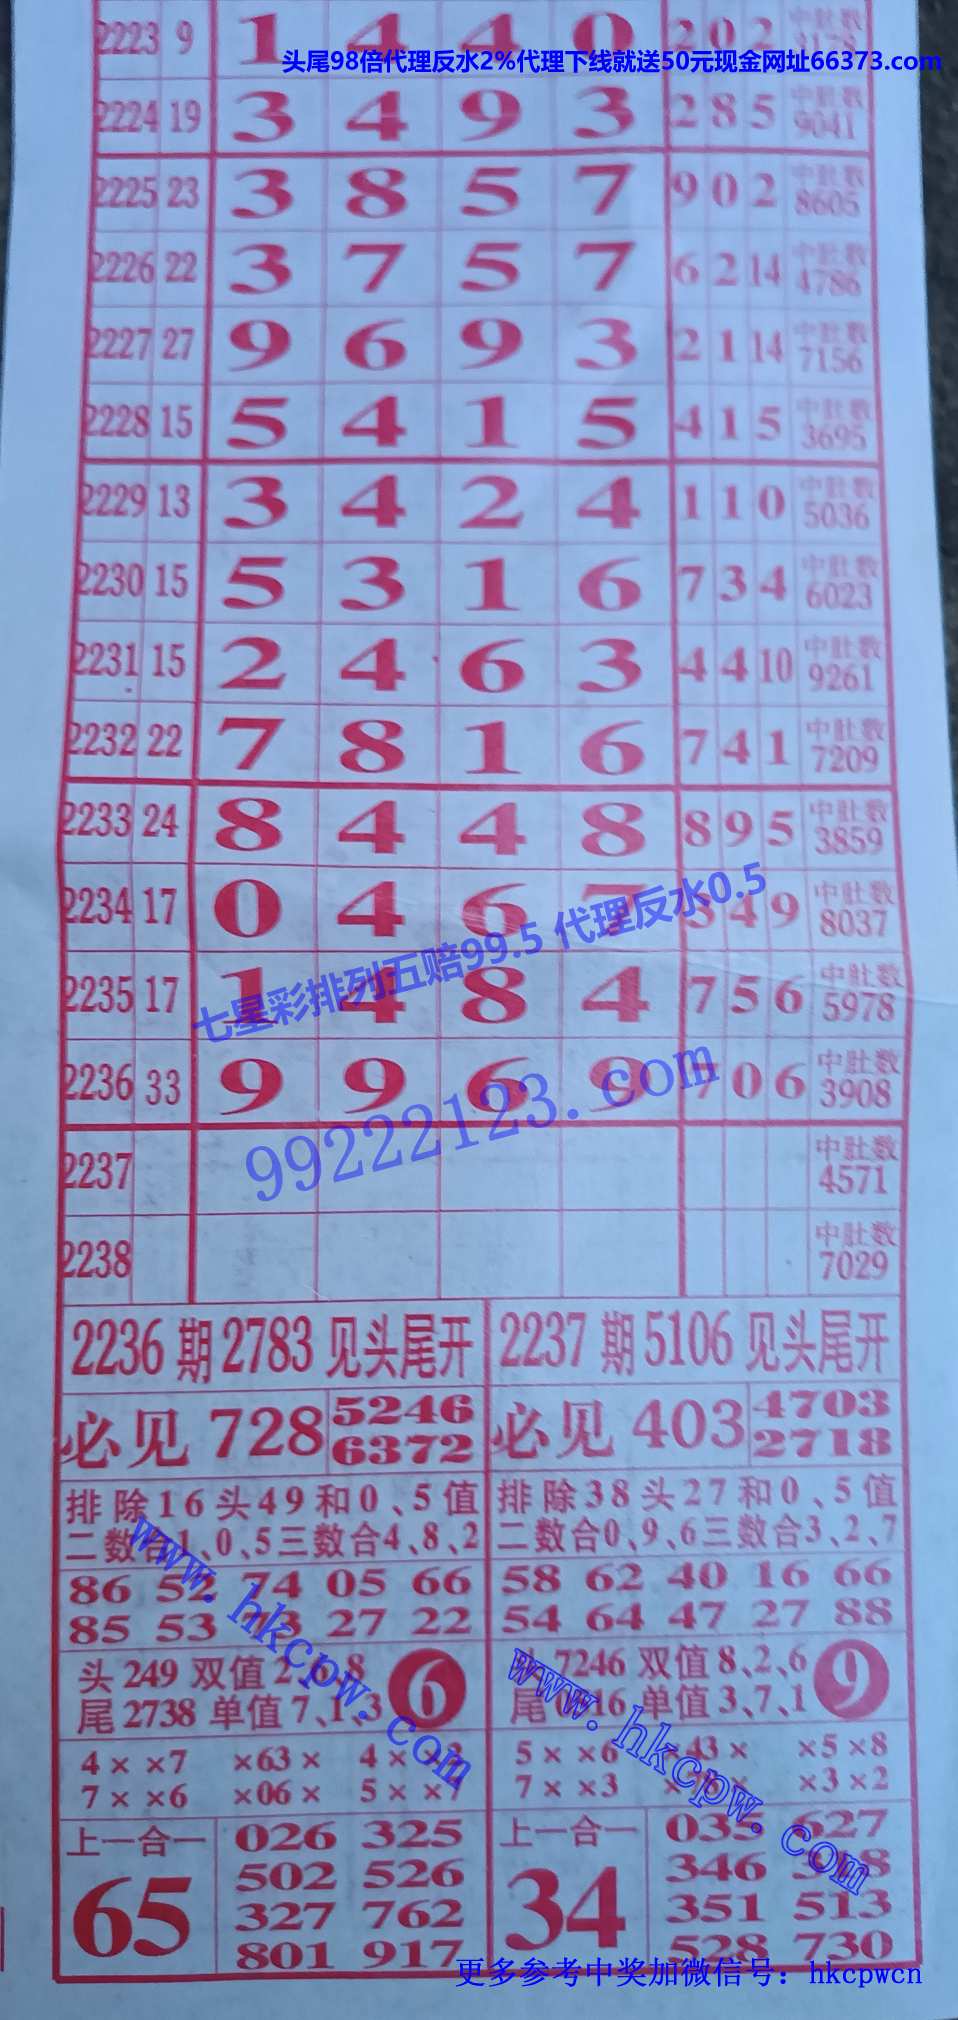 2223 9 1 4 4 0 2 0 2 中肚数
头尾98倍代理反水2%代理下线就送50元现金网址66373.com
2224 19 3 4 9 3 2 8 5 中肚数 9041
2225 23 3 8 5 7 9 0 2 中肚数 8605
2226 22 3 7 5 7 6 2 14 中肚数 4786
2227 27 9 6 9 3 2 1 14 中肚数 7156
2228 15 5 4 1 5 4 1 5 中肚数 3695
2229 13 3 4 2 4 1 1 0 中肚数 5036
2230 15 5 3 1 6 7 3 4 中肚数 6023
2231 15 2 4 6 3 4 4 10 中肚数 9261
2232 22 7 8 1 6 7 4 1 中肚数 7209
2233 24 8 4 4 8 8 9 5 中肚数 3859
2234 17 0 4 6 7 4 9 中肚数 8037
七星彩排列五赔99.5 代理反水0.5
2235 17 1 4 8 4 7 5 6 中肚数 5978
2236 33 9 9 6 9 7 0 6 中肚数 3908
99222123.com
2237 中肚数 4571
2238 中肚数 7029
2236期2783见头尾开
必见728 5246 6372
排除16头49和0、5值
二数合1、0、5三数合4、8、2
86 52 74 05 66
85 53 73 27 22
头249双值2、6、8
尾2738单值7、1、3
6
4××7 ×63× 4××2
7××6 ×06× 5××7
上一合一
65
026 325
502 526
327 762
801 917
2237期5106见头尾开
必见403 4703 2718
排除38头27和0、5值
二数合0、9、6三数合3、2、7
58 62 40 16 66
54 64 47 27 88
头7246双值8、2、6
尾16单值3、7、1
9
5××6 ×43× ×5×8
7××3 ×3×2
上一合一
34
035 627
346
351 513
528 730
www.hkcpw.com
www.hkcpw.com
更多参考中奖加微信号：hkcpwcn